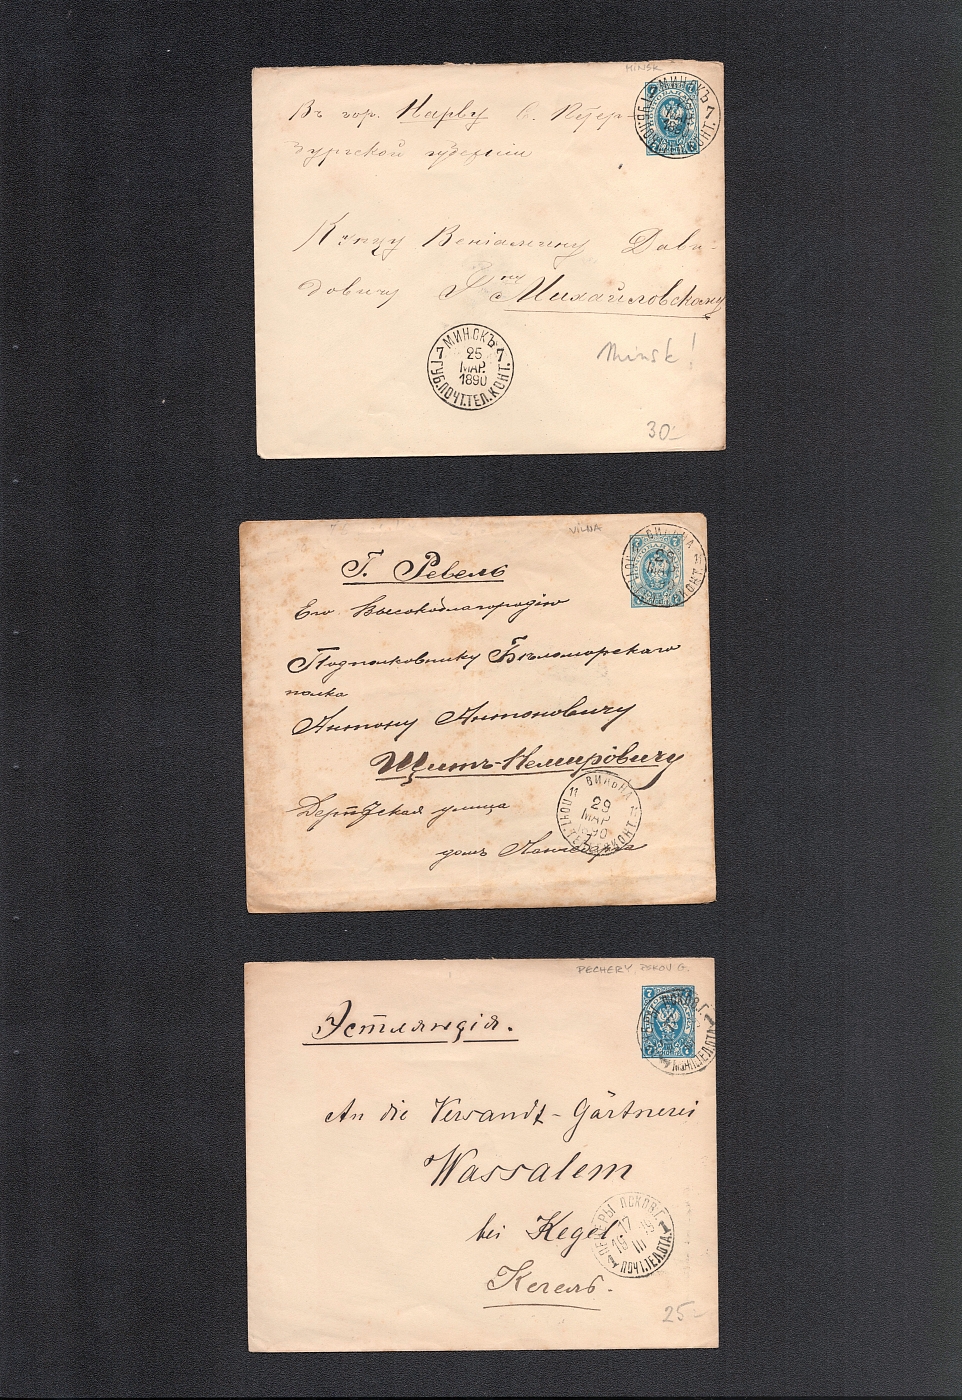 MINSK
МИНСКЪ
7
Въ гор. Нарву С. Петер-
бургской губернии
Купцу Веніамину Дави-
довичу Г-ну Михайловскому
МИНСКЪ
7 25 7
МАР.
1890
ГУБ.ПОЧТ.ТЕЛ.КОНТ.
Minsk!
30-
VILNA
Г. Ревель
Его Высокоблагородію
Подполковнику Бѣломорскаго
полка
Антону Антоновичу
Щитъ-Немировичу
ВИЛЬНА
11
29
МАР
1890
Дерптская улица
домъ
PECHERY, PSKOV G.
7 7
Эстляндія.
An die Versandt-Gärtnerei
Wassalem
bei Kegel
Кегель.
ПЕЧЕРЫ ПСКОВ.Г.
17
III
ПОЧТ.ТЕЛ.ОТД.
25-